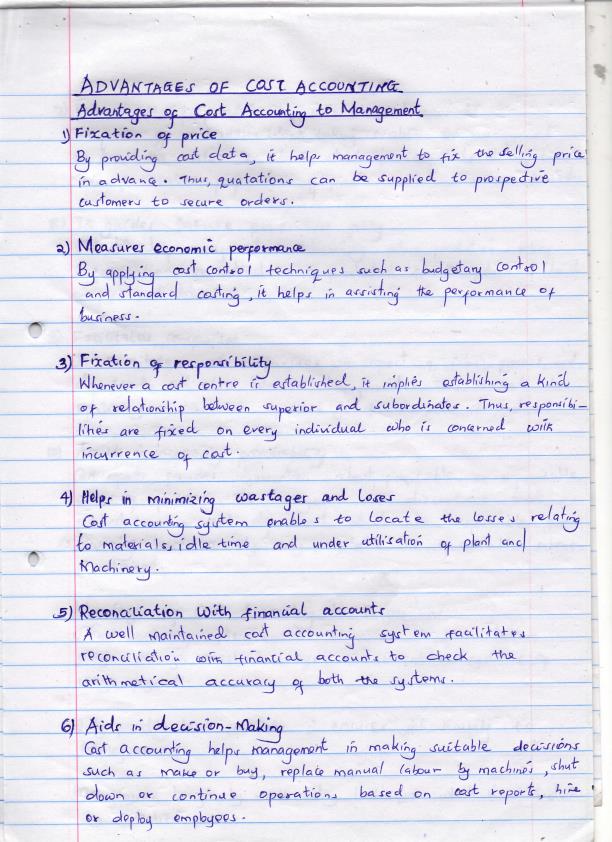 ADVANTAGES OF COST ACCOUNTING
Advantages of Cost Accounting to Management
1) Fixation of price
By providing cost data, it helps management to fix the selling price
in advance. Thus, quatations can be supplied to prospective
customers to secure orders.
2) Measures economic performance
By applying cost control techniques such as budgetary control
and standard costing, it helps in assisting the performance of
business.
3) Fixation of responsibility
Whenever a cost centre is established, it implies establishing a kind
of relationship between superior and subordinates. Thus, responsibi-
lities are fixed on every individual who is concerned with
incurrence of cost.
4) Helps in minimizing wastages and loses
Cost accounting system enables to locate the losses relating
to materials, idle time and under utilisation of plant and
Machinery.
5) Reconciliation With financial accounts
A well maintained cost accounting system facilitates
reconciliation with financial accounts to check the
arithmetical accuracy of both the systems.
6) Aids in decision-Making
Cost accounting helps management in making suitable decisions
such as make or buy, replace manual labour by machines, shut
down or continue operations based on cost reports, hire
or deploy employees.